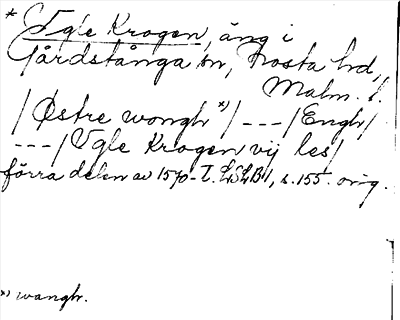 * Vgle Krogen, äng i
Gårdstånga sn, Frosta hd,
Malm. l.
/Østre wongh *)/ --- /Engh/
--- /Vgle Krogen vij les/
förra delen av 1570-t. LSLB1, s. 155. orig.
*) wangh.